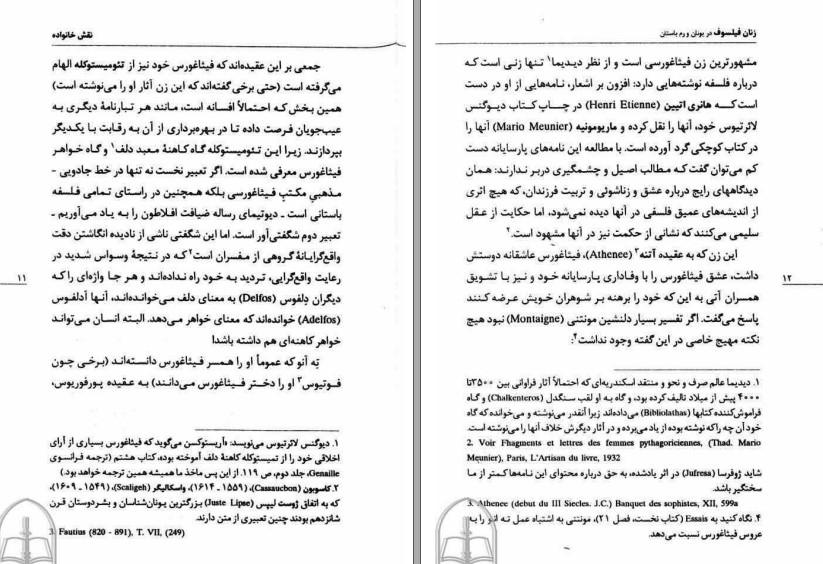 نقش خانواده
جمعی بر این عقیده‌اند که فیثاغورس خود نیز از تئومیستوکله الهام
می‌گرفته است (حتی برخی گفته‌اند که این زن آثار او را می‌نوشته است)
همین بخش که احتمالاً افسانه است، مانند هر تبارنامهٔ دیگری به
عیب‌جویان فرصت داده تا در بهره‌برداری از آن به رقابت با یکدیگر
بپردازند. زیرا این تئومیستوکله گاه کاهنهٔ معبد دلف۱ و گاه خواهر
فیثاغورس معرفی شده است. اگر تعبیر نخست نه تنها در خط جادویی -
مذهبی مکتب فیثاغورسی بلکه همچنین در راستای تمامی فلسفه
باستانی است - دیوتیمای رساله ضیافت افلاطون را به یاد می‌آوریم -
تعبیر دوم شگفتی‌آور است. اما این شگفتی ناشی از نادیده انگاشتن دقت
واقع‌گرایانهٔ گروهی از مفسران است۲ که در نتیجهٔ وسواس شدید در
رعایت واقع‌گرایی، تردید به خود راه نداده‌اند و هر جا واژه‌ای را که
دیگران دِلفوس (Delfos) به معنای دلف می‌خوانده‌اند، آنها آدلفوس
(Adelfos) خوانده‌اند که معنای خواهر می‌دهد. البته انسان می‌تواند
خواهر کاهنه‌ای هم داشته باشد!
تِه آنو که عموماً او را همسر فیثاغورس دانسته‌اند (برخی چون
فوتیوس۳ او را دختر فیثاغورس می‌دانند) به عقیده پورفوریوس،
۱. دیوگنس لائرتیوس می‌نویسد: «آریستوکسن می‌گوید که فیثاغورس بسیاری از آرای
اخلاقی خود را از تمیستوکله کاهنهٔ دلف آموخته بود، کتاب هشتم (ترجمه فرانسوی
Genaille، جلد دوم، ص ۱۱۹. از این پس ماخذ ما همیشه همین ترجمه خواهد بود.)
۲. کاسوبون (Cassaucbon)، (۱۵۵۹ ـ ۱۶۱۴)، واسکالیگر (Scaligeh)، (۱۵۴۹ ـ ۱۶۰۹)،
که به اتفاق ژوست لیپس (Juste Lipse) بزرگترین یونان‌شناسان و بشردوستان قرن
شانزدهم بودند چنین تعبیری از متن دارند.
3. Fautius (820 - 891), T. VII, (249)
۱۱
زنان فیلسوف در یونان و رم باستان
مشهورترین زن فیثاغورسی است و از نظر دیدیما۱ تنها زنی است که
درباره فلسفه نوشته‌هایی دارد: افزون بر اشعار، نامه‌هایی از او در دست
است که هانری اتیین (Henri Etienne) در چاپ کتاب دیوگنس
لائرتیوس خود، آنها را نقل کرده و ماریومونیه (Mario Meunier) آنها را
در کتاب کوچکی گرد آورده است. با مطالعه این نامه‌های پارسایانه دست
کم می‌توان گفت که مطالب اصیل و چشمگیری دربر ندارند: همان
دیدگاههای رایج درباره عشق و زناشوئی و تربیت فرزندان، که هیچ اثری
از اندیشه‌های عمیق فلسفی در آنها دیده نمی‌شود، اما حکایت از عقل
سلیمی می‌کنند که نشانی از حکمت نیز در آنها مشهود است.۲
این زن که به عقیده آتنه۳ (Athenee)، فیثاغورس عاشقانه دوستش
داشت، عشق فیثاغورس را با وفاداری پارسایانه خود و نیز با تشویق
همسران آتی به این که خود را برهنه بر شوهران خویش عرضه کنند
پاسخ می‌گفت. اگر تفسیر بسیار دلنشین مونتنی (Montaigne) نبود هیچ
نکته مهیج خاصی در این گفته وجود نداشت۴:
۱. دیدیما عالم صرف و نحو و منتقد اسکندریه‌ای که احتمالاً آثار فراوانی بین ۳۵۰۰تا
۴۰۰۰ پیش از میلاد تالیف کرده بود، و گاه به او لقب سنگدل (Chalkenteros) و گاه
فراموش‌کننده کتابها (Bibliolathas) می‌داده‌اند زیرا آنقدر می‌نوشته و می‌خوانده که گاه
خود آن چه را که نوشته بوده از یاد می‌برده و در آثار دیگرش خلاف آنها را می‌نوشته است.
2. Voir Fhagments et lettres des femmes pythagoriciennes, (Thad. Mario
Meunier), Paris, L'Artisan du livre, 1932
شاید ژوفرسا (Jufresa) در اثر یادشده، به حق درباره محتوای این نامه‌ها کمتر از ما
سختگیر باشد.
3. Athenee (debut du III Siecles. J.C.) Banquet des sophistes, XII, 599a
۴. نگاه کنید به Essais (کتاب نخست، فصل ۲۱)، مونتنی به اشتباه عمل ته آنو را به
عروس فیثاغورس نسبت می‌دهد.
۱۲